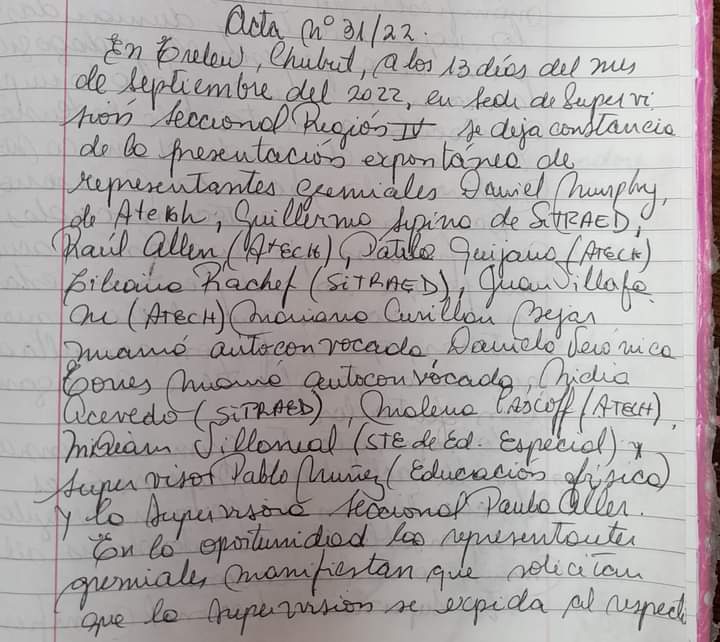 Acta nº 31/22.
En Trelew, Chubut, a los 13 días del mes
de septiembre del 2022, en sede de Supervi
sión Seccional Región IV se deja constancia
de la presentación expontánea de
representantes gremiales Daniel Murphy,
de Atech, Guillermo Spina de SiTRAED,
Raúl Allen (ATECH), Quijano (ATECH)
Bibiana Rachef (SiTRAED), Juan Villafa
ñe (ATECH) Mariana Curillan Bejar
mamá autoconvocada Daniela Verónica
Torres mamá autoconvocada, Nidia
Acevedo (SiTRAED), Malena (ATECH),
Miriam (STE de Ed. Especial) y
supervisor Pablo Muñez (Educación física)
y la Supervisora Seccional Paula Aller.
En la oportunidad los representantes
gremiales manifiestan que solicitan
que la supervisión se expida al respecto